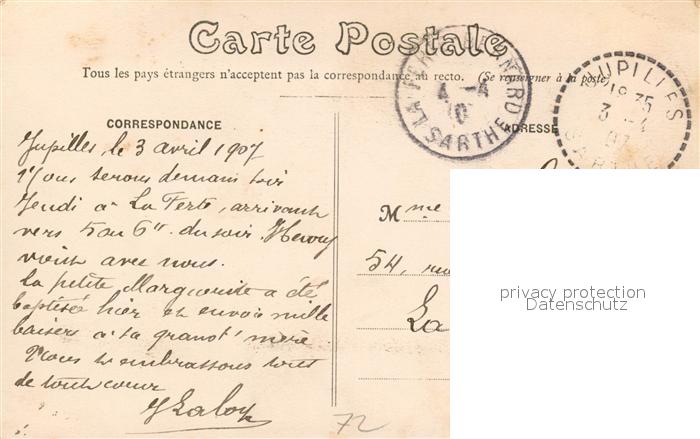 Carte Postale
Tous les pays étrangers n'acceptent pas la correspondance au recto. (Se renseigner à la poste)
CORRESPONDANCE
ADRESSE
JUPILLES
3 -4
LA FERTE BERNARD
4 -4
SARTHE
Jupilles le 3 avril 1907
Nous serons demain soir
Jeudi à La Ferté, arrivant
vers 5 ou 6h du soir.
vient avec nous.
La petite Marguerite a été
baptisée hier et envoie mille
baisers à sa grand'mère
Nous t'embrassons tous
de tout cœur
Mme
54, rue
La
72
privacy protection
Datenschutz